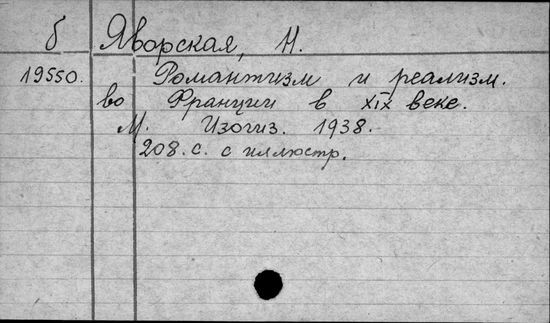 б Яворская, Н.
19550. Романтизм и реализм.
во Франции в XIX веке.
М. Изогиз. 1938.
208. с. с иллюстр.